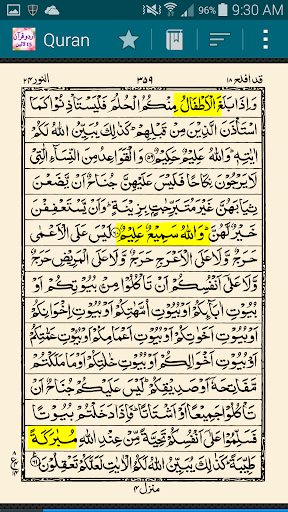 9:30 AM
89%
Quran
قد افلح ۱۸
۳۵۹
النور ۲۴
وَاِذَا بَلَغَ الْاَطْفَالُ مِنْكُمُ الْحُلُمَ فَلْيَسْتَاْذِنُوْا كَمَا
اسْتَاْذَنَ الَّذِيْنَ مِنْ قَبْلِهِمْ ؕ كَذٰلِكَ يُبَيِّنُ اللّٰهُ لَكُمْ
اٰيٰتِهٖ ؕ وَاللّٰهُ عَلِيْمٌ حَكِيْمٌ ﴿۵۹﴾ وَالْقَوَاعِدُ مِنَ النِّسَآءِ الّٰتِيْ
لَا يَرْجُوْنَ نِكَاحًا فَلَيْسَ عَلَيْهِنَّ جُنَاحٌ اَنْ يَّضَعْنَ
ثِيَابَهُنَّ غَيْرَ مُتَبَرِّجٰتٍۭ بِزِيْنَةٍ ؕ وَاَنْ يَّسْتَعْفِفْنَ
خَيْرٌ لَّهُنَّ ؕ وَاللّٰهُ سَمِيْعٌ عَلِيْمٌ ﴿۶۰﴾ لَيْسَ عَلَى الْاَعْمٰى
حَرَجٌ وَّلَا عَلَى الْاَعْرَجِ حَرَجٌ وَّلَا عَلَى الْمَرِيْضِ حَرَجٌ
وَّلَا عَلٰٓى اَنْفُسِكُمْ اَنْ تَاْكُلُوْا مِنْۢ بُيُوْتِكُمْ اَوْ
بُيُوْتِ اٰبَآئِكُمْ اَوْ بُيُوْتِ اُمَّهٰتِكُمْ اَوْ بُيُوْتِ اِخْوَانِكُمْ
اَوْ بُيُوْتِ اَخَوٰتِكُمْ اَوْ بُيُوْتِ اَعْمَامِكُمْ اَوْ بُيُوْتِ عَمّٰتِكُمْ
اَوْ بُيُوْتِ اَخْوَالِكُمْ اَوْ بُيُوْتِ خٰلٰتِكُمْ اَوْ مَا مَلَكْتُمْ
مَّفَاتِحَهٗٓ اَوْ صَدِيْقِكُمْ ؕ لَيْسَ عَلَيْكُمْ جُنَاحٌ اَنْ
تَاْكُلُوْا جَمِيْعًا اَوْ اَشْتَاتًا ؕ فَاِذَا دَخَلْتُمْ بُيُوْتًا
فَسَلِّمُوْا عَلٰٓى اَنْفُسِكُمْ تَحِيَّةً مِّنْ عِنْدِ اللّٰهِ مُبٰرَكَةً
طَيِّبَةً ؕ كَذٰلِكَ يُبَيِّنُ اللّٰهُ لَكُمُ الْاٰيٰتِ لَعَلَّكُمْ تَعْقِلُوْنَ ﴿۶۱﴾
منزل ۴